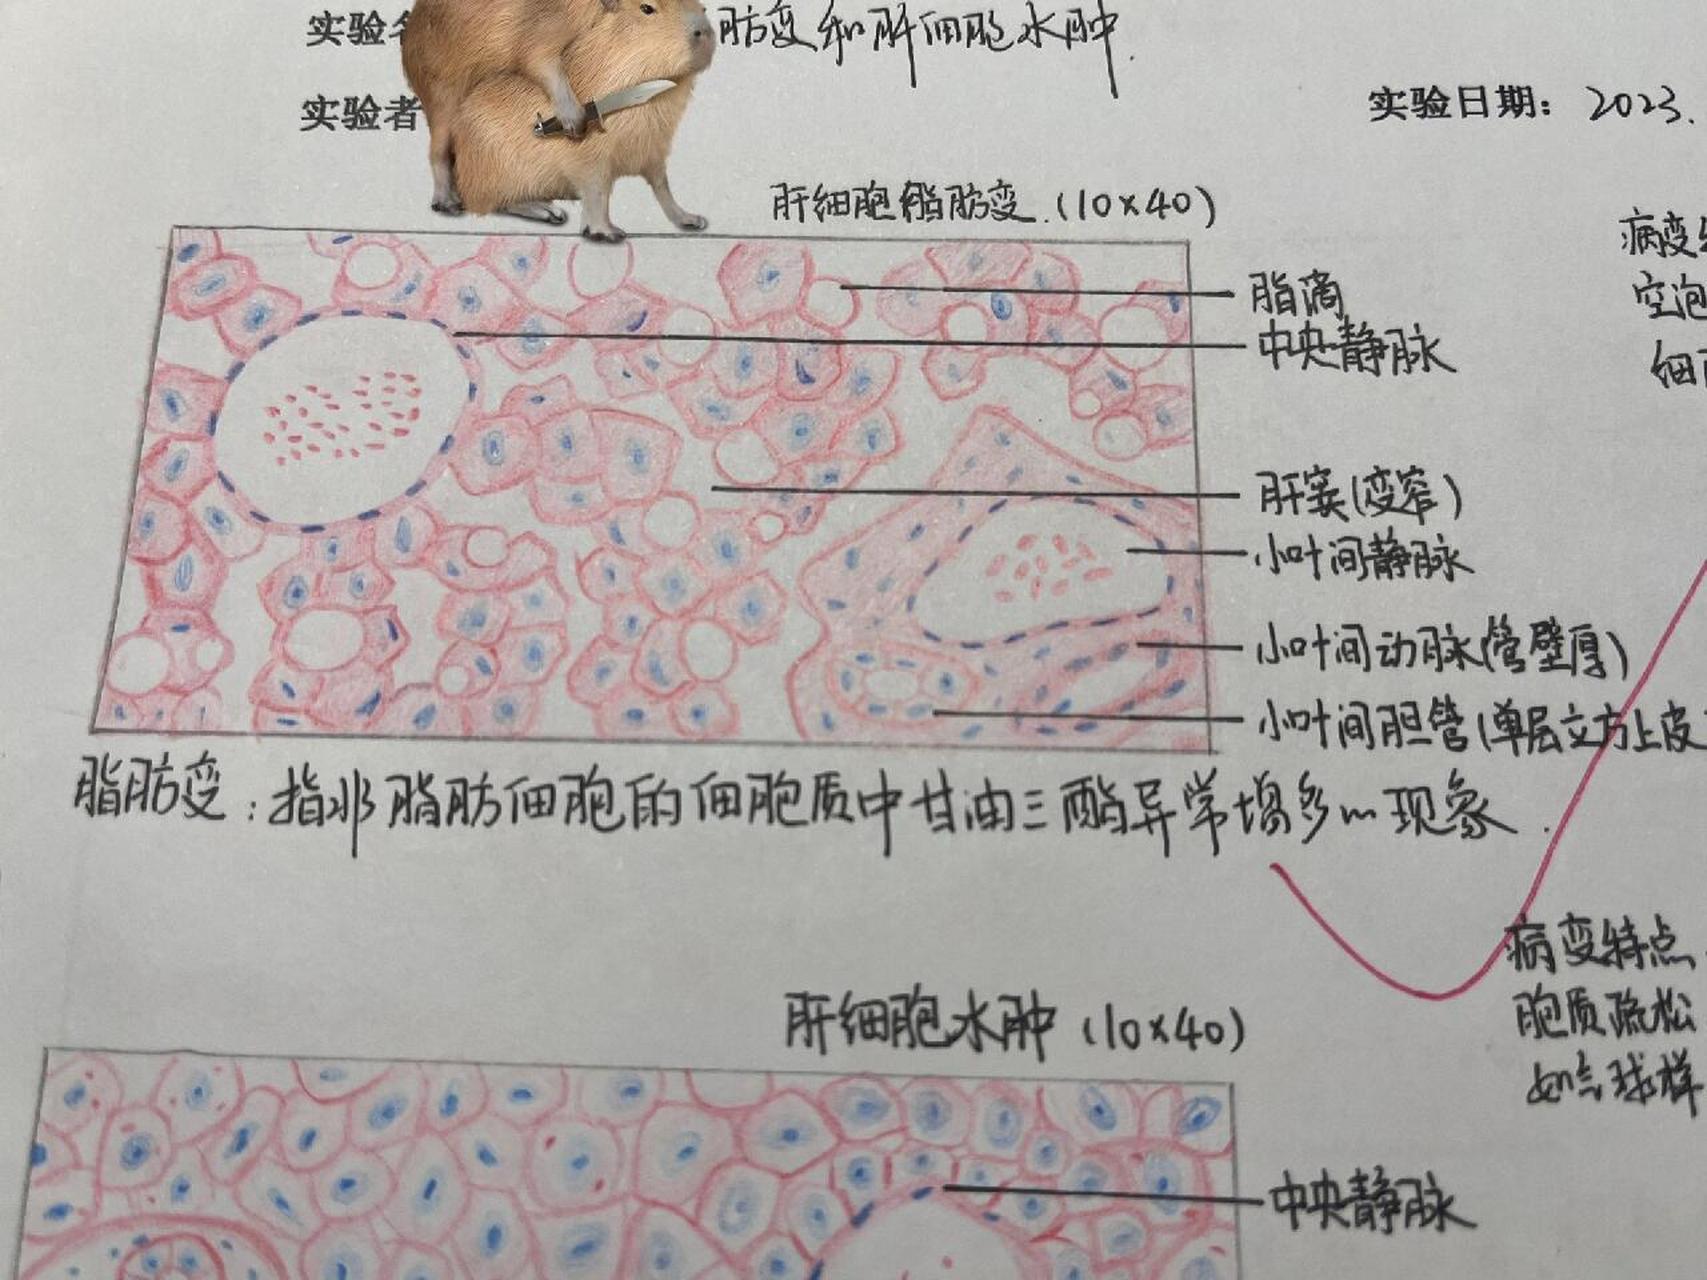 实验名 肪变和肝细胞水肿.
实验者
实验日期: 2023.
肝细胞脂肪变.(10×40)
病变
空泡
细
脂滴
中央静脉
肝窦(变窄)
小叶间静脉
小叶间动脉(管壁厚)
小叶间胆管(单层立方上皮
脂肪变:指非脂肪细胞的细胞质中甘油三酯异常增多的现象.
病变特点
胞质疏松
如气球样
肝细胞水肿(10×40)
中央静脉